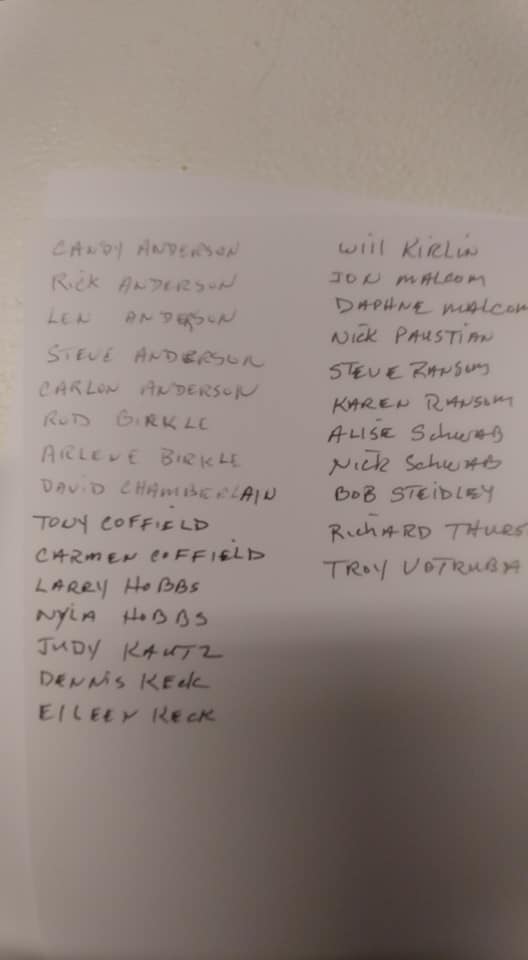 CANDY ANDERSON
RICK ANDERSON
LEN ANDERSON
STEVE ANDERSON
CARLON ANDERSON
ROD BIRKLE
ARLENE BIRKLE
DAVID CHAMBERLAIN
TONY COFFIELD
CARMEN COFFIELD
LARRY HOBBS
NYLA HOBBS
JUDY KAUTZ
DENNIS KECK
EILEEN KECK
Will KIRLIN
JON MALCOM
DAPHNE MALCOM
NICK PAUSTIAN
STEVE RANSOM
KAREN RANSOM
ALISE SCHWAB
NICK SCHWAB
BOB STEIDLEY
RICHARD THURS
TROY VOTRUBA